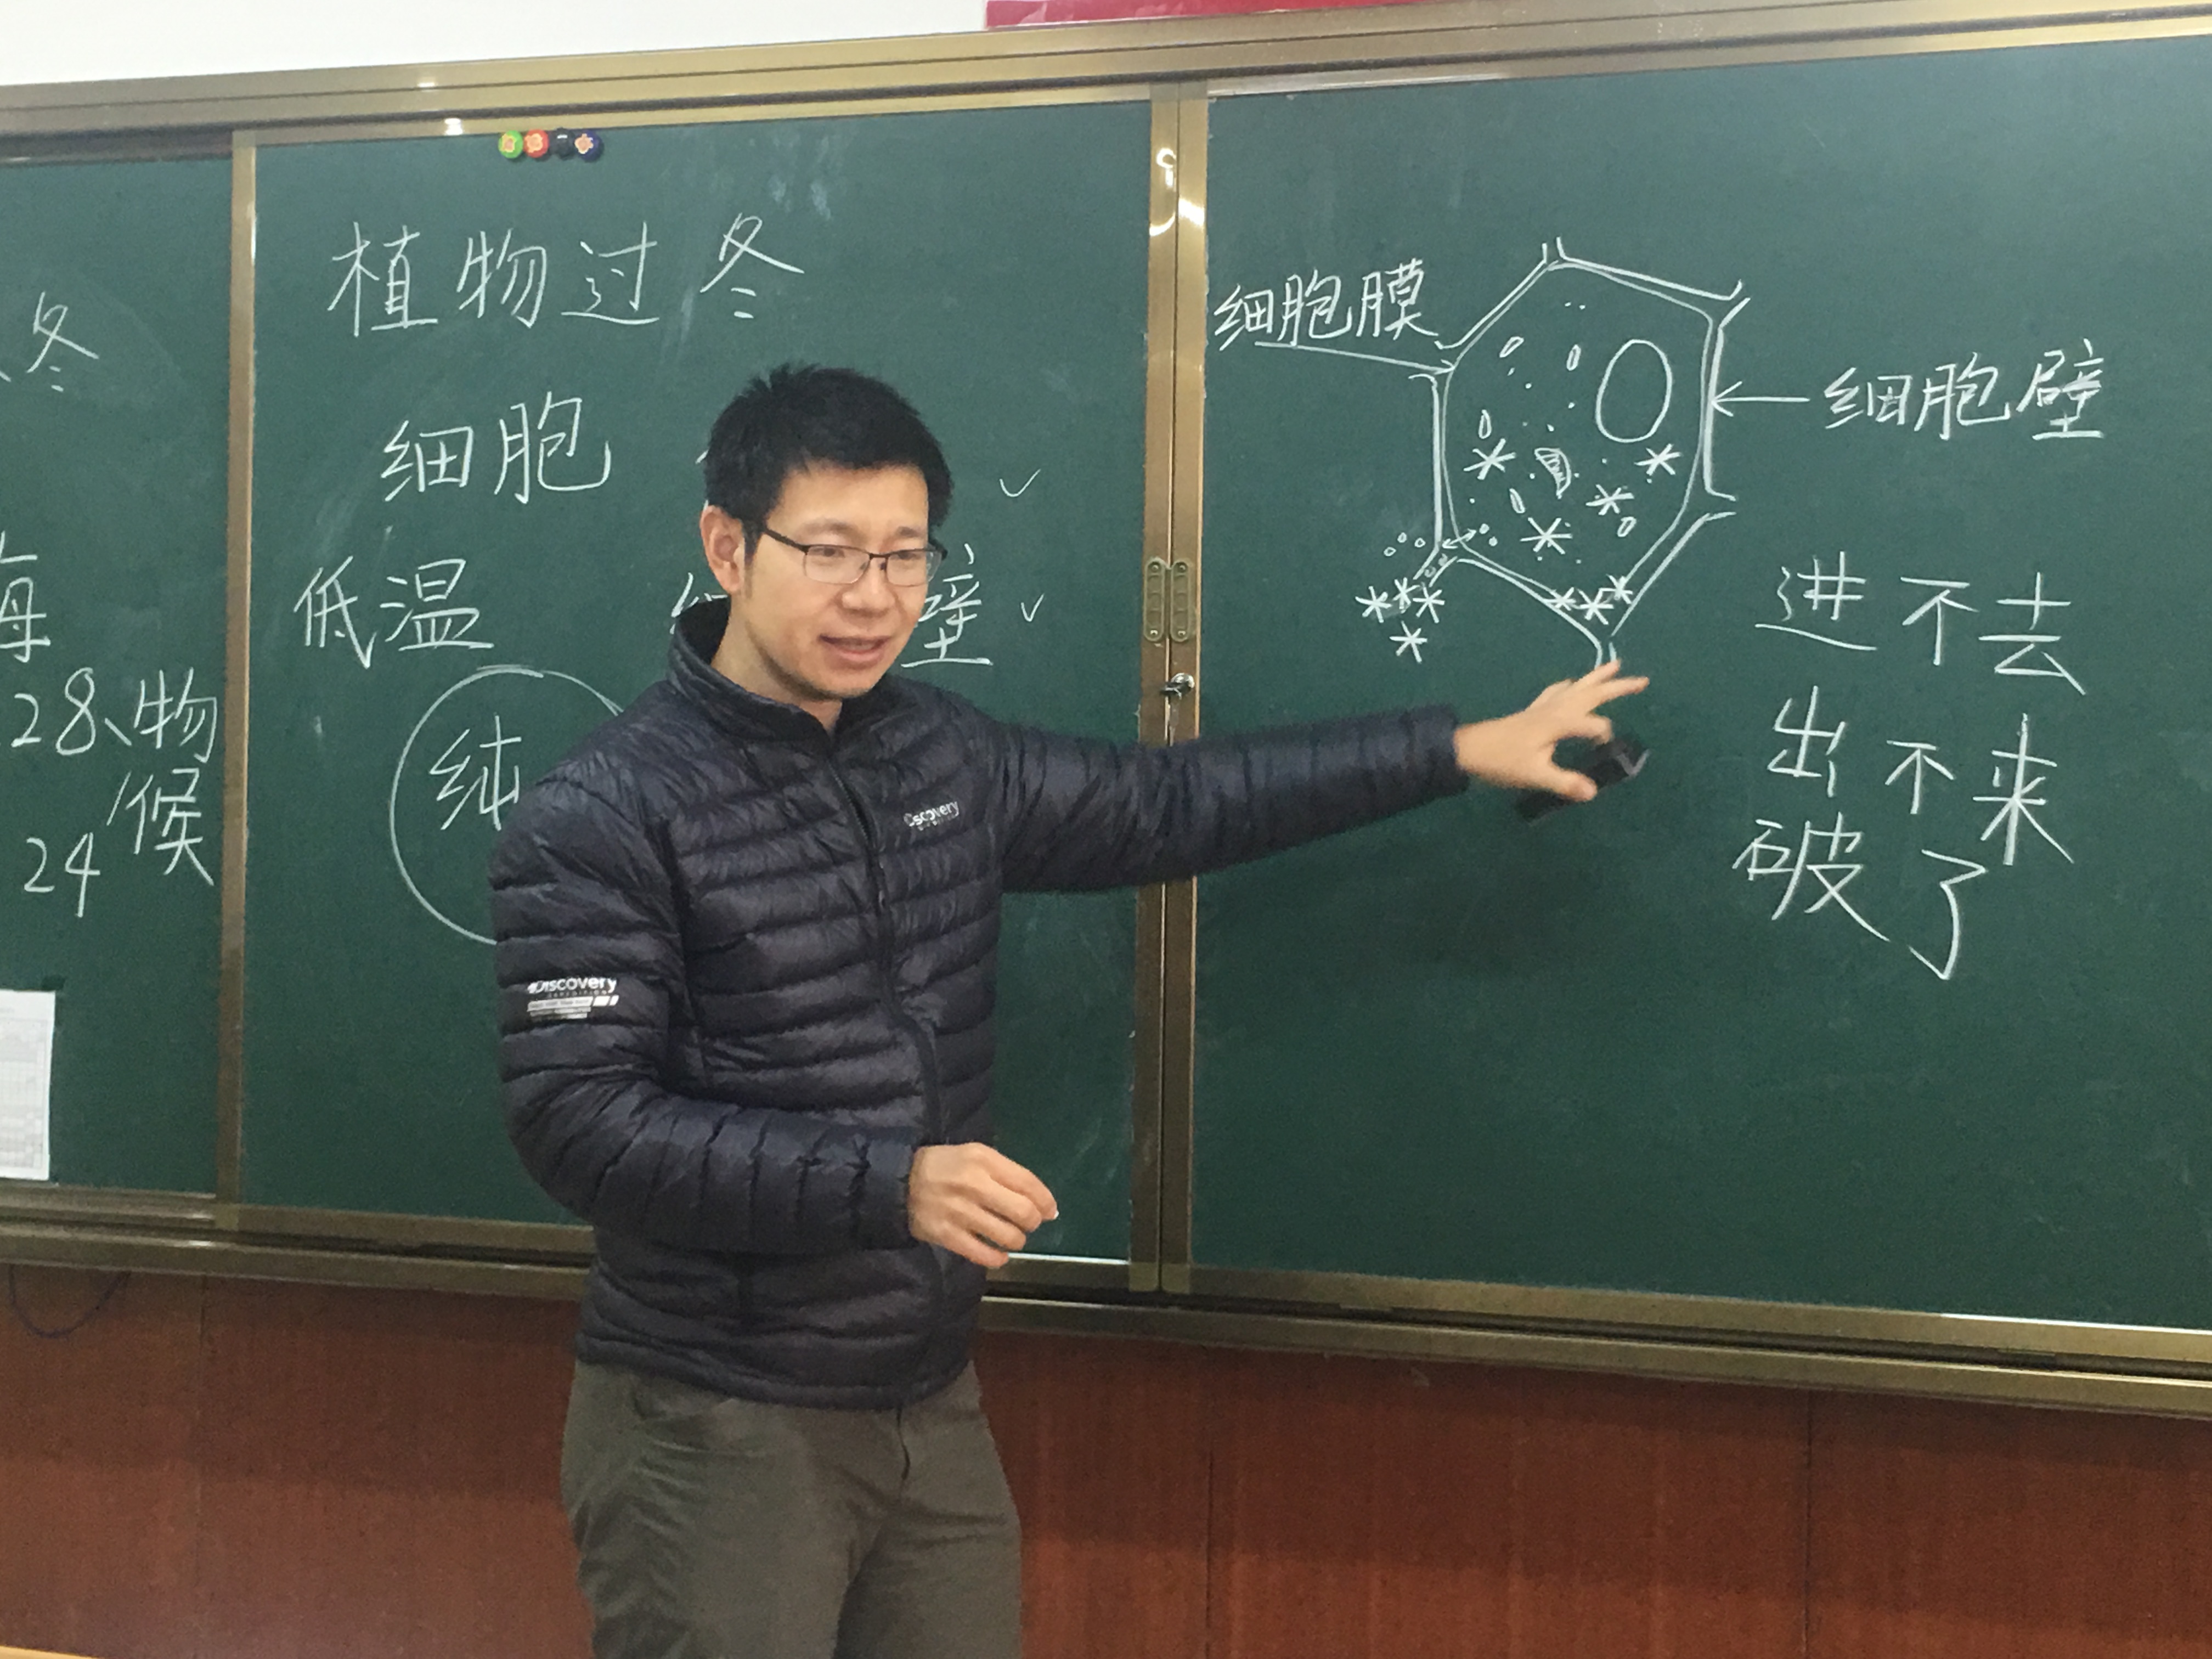 冬
海
28、物
24 候
植物过冬
细胞
低温
壁
纯
细胞膜
细胞壁
进不去
出不来
破了
Discovery
Discovery